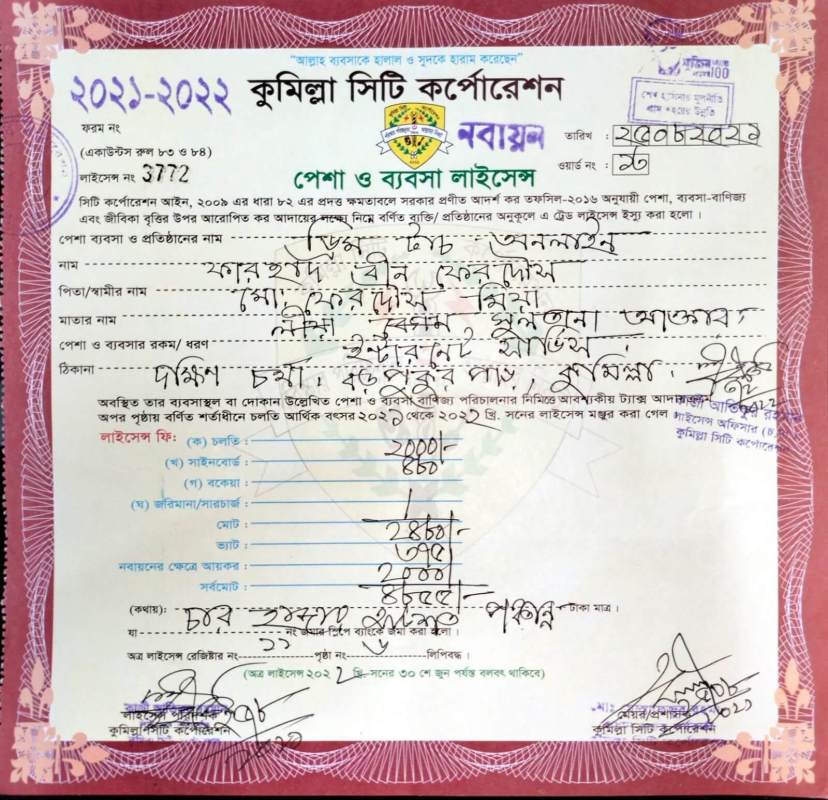 "আল্লাহ ব্যবসাকে হালাল ও সুদকে হারাম করেছেন"
২০২১-২০২২ কুমিল্লা সিটি কর্পোরেশন
শেখ হাসিনার মূলনীতি
গ্রাম শহরের উন্নতি
ফরম নং
নবায়ন
তারিখ :
(একাউন্টস রুল ৮৩ ও ৮৪)
ওয়ার্ড নং :
লাইসেন্স নং 3772
পেশা ও ব্যবসা লাইসেন্স
সিটি কর্পোরেশন আইন, ২০০৯ এর ধারা ৮২ এর প্রদত্ত ক্ষমতাবলে সরকার প্রণীত আদর্শ কর তফসিল-২০১৬ অনুযায়ী পেশা, ব্যবসা-বাণিজ্য
এবং জীবিকা বৃত্তির উপর আরোপিত কর আদায়ের লক্ষ্যে নিম্নে বর্ণিত ব্যক্তি/ প্রতিষ্ঠানের অনুকূলে এ ট্রেড লাইসেন্স ইস্যু করা হলো ।
পেশা ব্যবসা ও প্রতিষ্ঠানের নাম ড্রিম টাচ অনলাইন
নাম ফারহাদ বীন ফেরদৌস
পিতা/স্বামীর নাম মো: ফেরদৌস মিয়া
মাতার নাম লীয়া বেগম সুলতানা আক্তার
পেশা ও ব্যবসার রকম/ ধরণ ইন্টারনেট সার্ভিস
ঠিকানা দক্ষিণ চর্থা, বড় পুকুর পাড়, কুমিল্লা ।
অবস্থিত তার ব্যবসাস্থল বা দোকান উল্লেখিত পেশা ও ব্যবসা বাণিজ্য পরিচালনার নিমিত্তে আবশ্যকীয় ট্যাক্স আদায়
অপর পৃষ্ঠায় বর্ণিত শর্তাধীনে চলতি আর্থিক বৎসর ২০২১ থেকে ২০২২ খ্রি. সনের লাইসেন্স মঞ্জুর করা গেল
লাইসেন্স অফিসার
কুমিল্লা সিটি কর্পোরেশন
লাইসেন্স ফি: (ক) চলতি : ২০০০/-
(খ) সাইনবোর্ড : ৪৮০
(গ) বকেয়া :
(ঘ) জরিমানা/সারচার্জ :
মোট : ২৪৮০/-
ভ্যাট : ৩৭৫
নবায়নের ক্ষেত্রে আয়কর : ২০০০
সর্বমোট : ৪৮৫৫/-
(কথায়): চার হাজার আটশত পঞ্চান্ন টাকা মাত্র ।
যা নং জমার স্লিপে ব্যাংকে জমা করা হলো ।
অত্র লাইসেন্স রেজিষ্টার নং ১১ পৃষ্ঠা নং ৬ লিপিবদ্ধ ।
(অত্র লাইসেন্স ২০২২ খ্রি. সনের ৩০ শে জুন পর্যন্ত বলবৎ থাকিবে)
লাইসেন্স পরিদর্শক
কুমিল্লা সিটি কর্পোরেশন
মেয়র/প্রশাসক
কুমিল্লা সিটি কর্পোরেশন